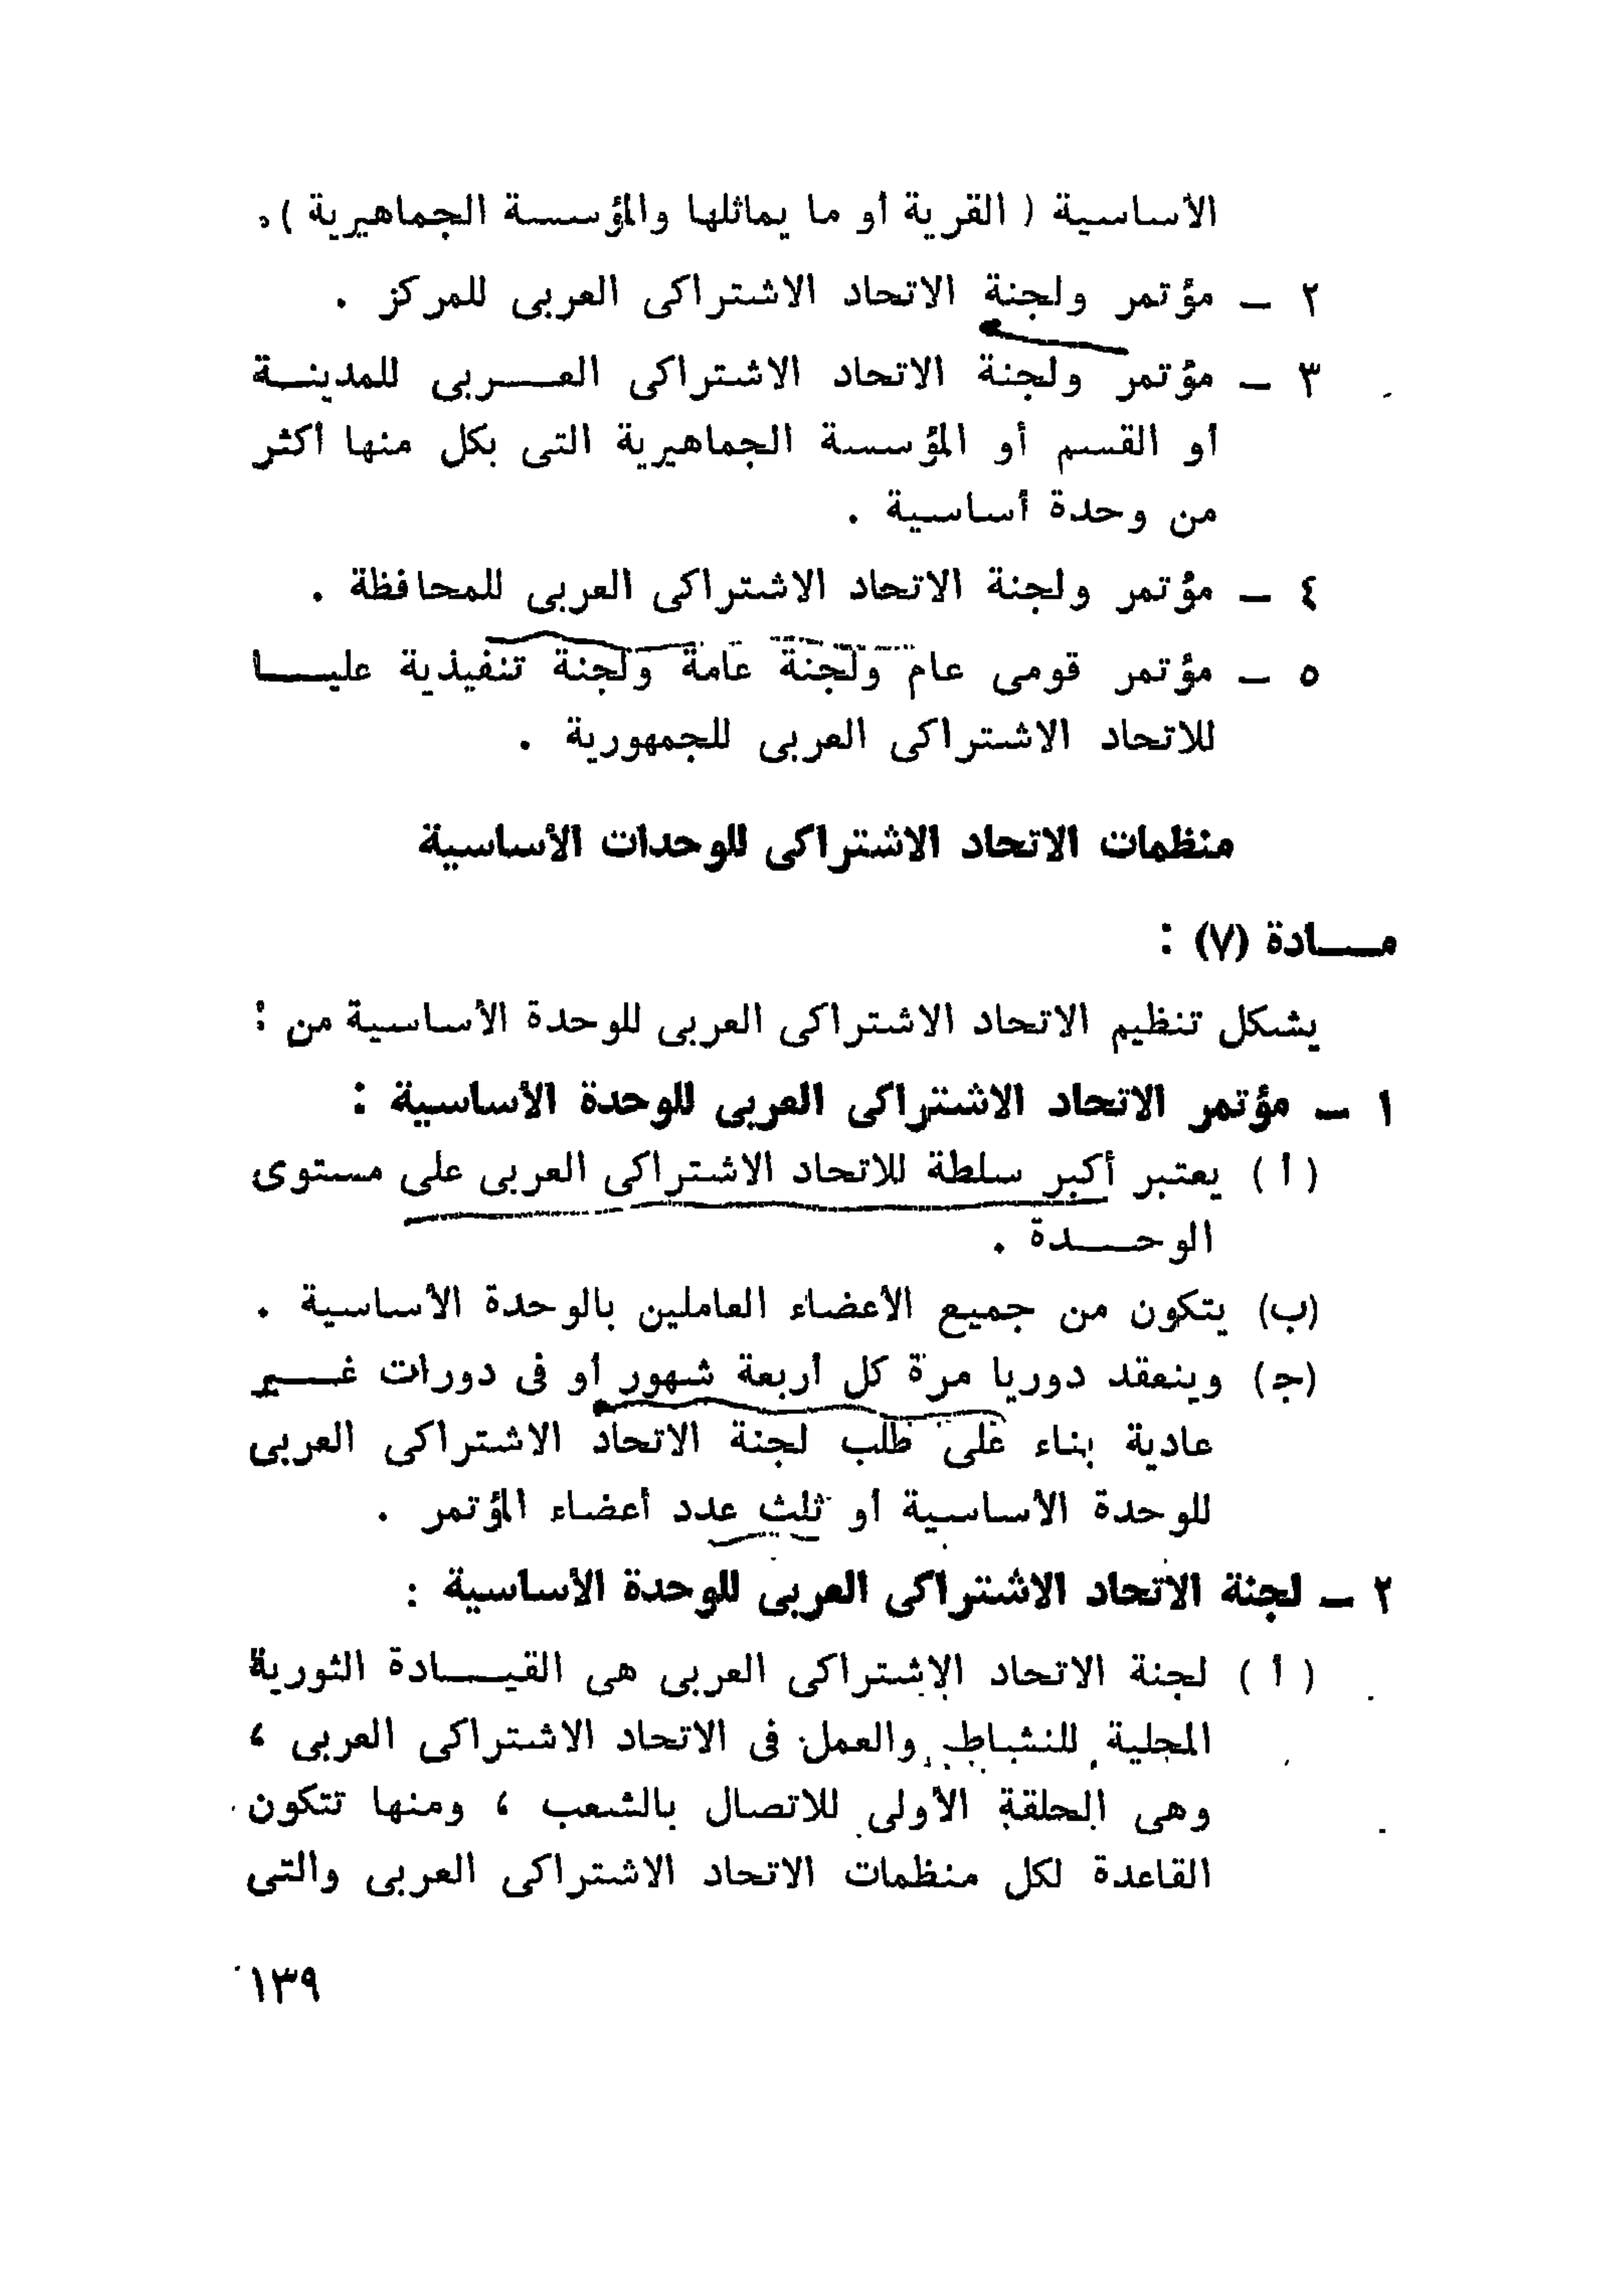 الأساسية ( القرية أو ما يماثلها والمؤسسة الجماهيرية ) .
٢ ـ مؤتمر ولجنة الاتحاد الاشتراكى العربى للمركز .
٣ ـ مؤتمر ولجنة الاتحاد الاشتراكى العـــربى للمدينــة
أو القسم أو المؤسسة الجماهيرية التى بكل منها أكثر
من وحدة أساسية .
٤ ـ مؤتمر ولجنة الاتحاد الاشتراكى العربى للمحافظة .
٥ ـ مؤتمر قومى عام ولجنة عامة ولجنة تنفيذية عليـــا
للاتحاد الاشتراكى العربى للجمهورية .
منظمات الاتحاد الاشتراكى للوحدات الأساسية
مـــادة (٧) :
يشكل تنظيم الاتحاد الاشتراكى العربى للوحدة الأساسية من :
١ ـ مؤتمر الاتحاد الاشتراكى العربى للوحدة الأساسية :
( أ ) يعتبر أكبر سلطة للاتحاد الاشتراكى العربى على مستوى
الوحـــدة .
(ب) يتكون من جميع الأعضاء العاملين بالوحدة الأساسية .
(ج) وينعقد دوريا مرة كل أربعة شهور أو فى دورات غـــير
عادية بناء على طلب لجنة الاتحاد الاشتراكى العربى
للوحدة الأساسية أو ثلث عدد أعضاء المؤتمر .
٢ ـ لجنة الاتحاد الاشتراكى العربى للوحدة الأساسية :
( أ ) لجنة الاتحاد الاشتراكى العربى هى القيـــادة الثورية
المحلية للنشاط والعمل فى الاتحاد الاشتراكى العربى ،
وهى الحلقة الأولى للاتصال بالشعب ، ومنها تتكون
القاعدة لكل منظمات الاتحاد الاشتراكى العربى والتى
١٣٩